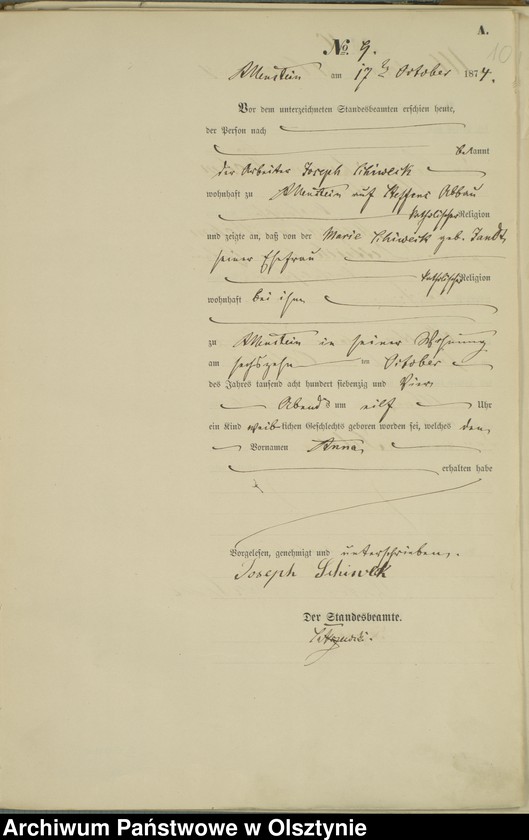 A.
No 9.
Allenstein am 17t October 1874.
Vor dem unterzeichneten Standesbeamten erschien heute,
der Person nach
bekannt
der Arbeiter Joseph Schiweck
wohnhaft zu Allenstein auf Abbau
katholischer Religion
und zeigte an, daß von der Marie Schiweck geb.
seiner Ehefrau
katholischer Religion
wohnhaft bei ihm
zu Allenstein in seiner Wohnung
am sechszehn ten October
des Jahres tausend acht hundert siebenzig und vier
Abends um eilf Uhr
ein Kind weiblichen Geschlechts geboren worden sei, welches den
Vornamen Anna
erhalten habe
Vorgelesen, genehmigt und unterschrieben.
Joseph Schiweck
Der Standesbeamte.
Archiwum Państwowe w Olsztynie